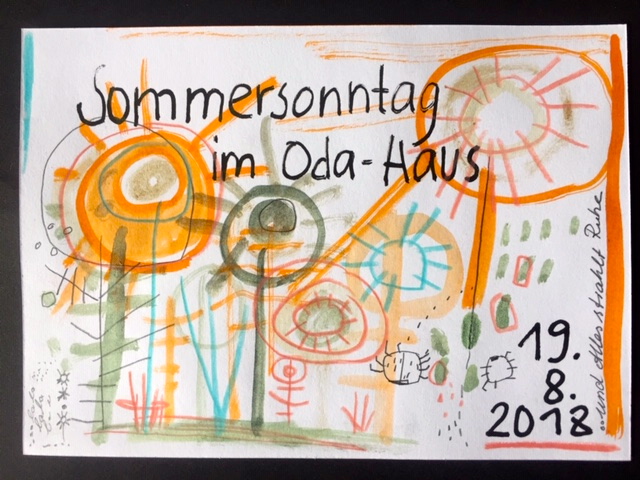 Sommersonntag
im Oda-Haus
19.
8.
2018
...und alles strahlt Ruhe